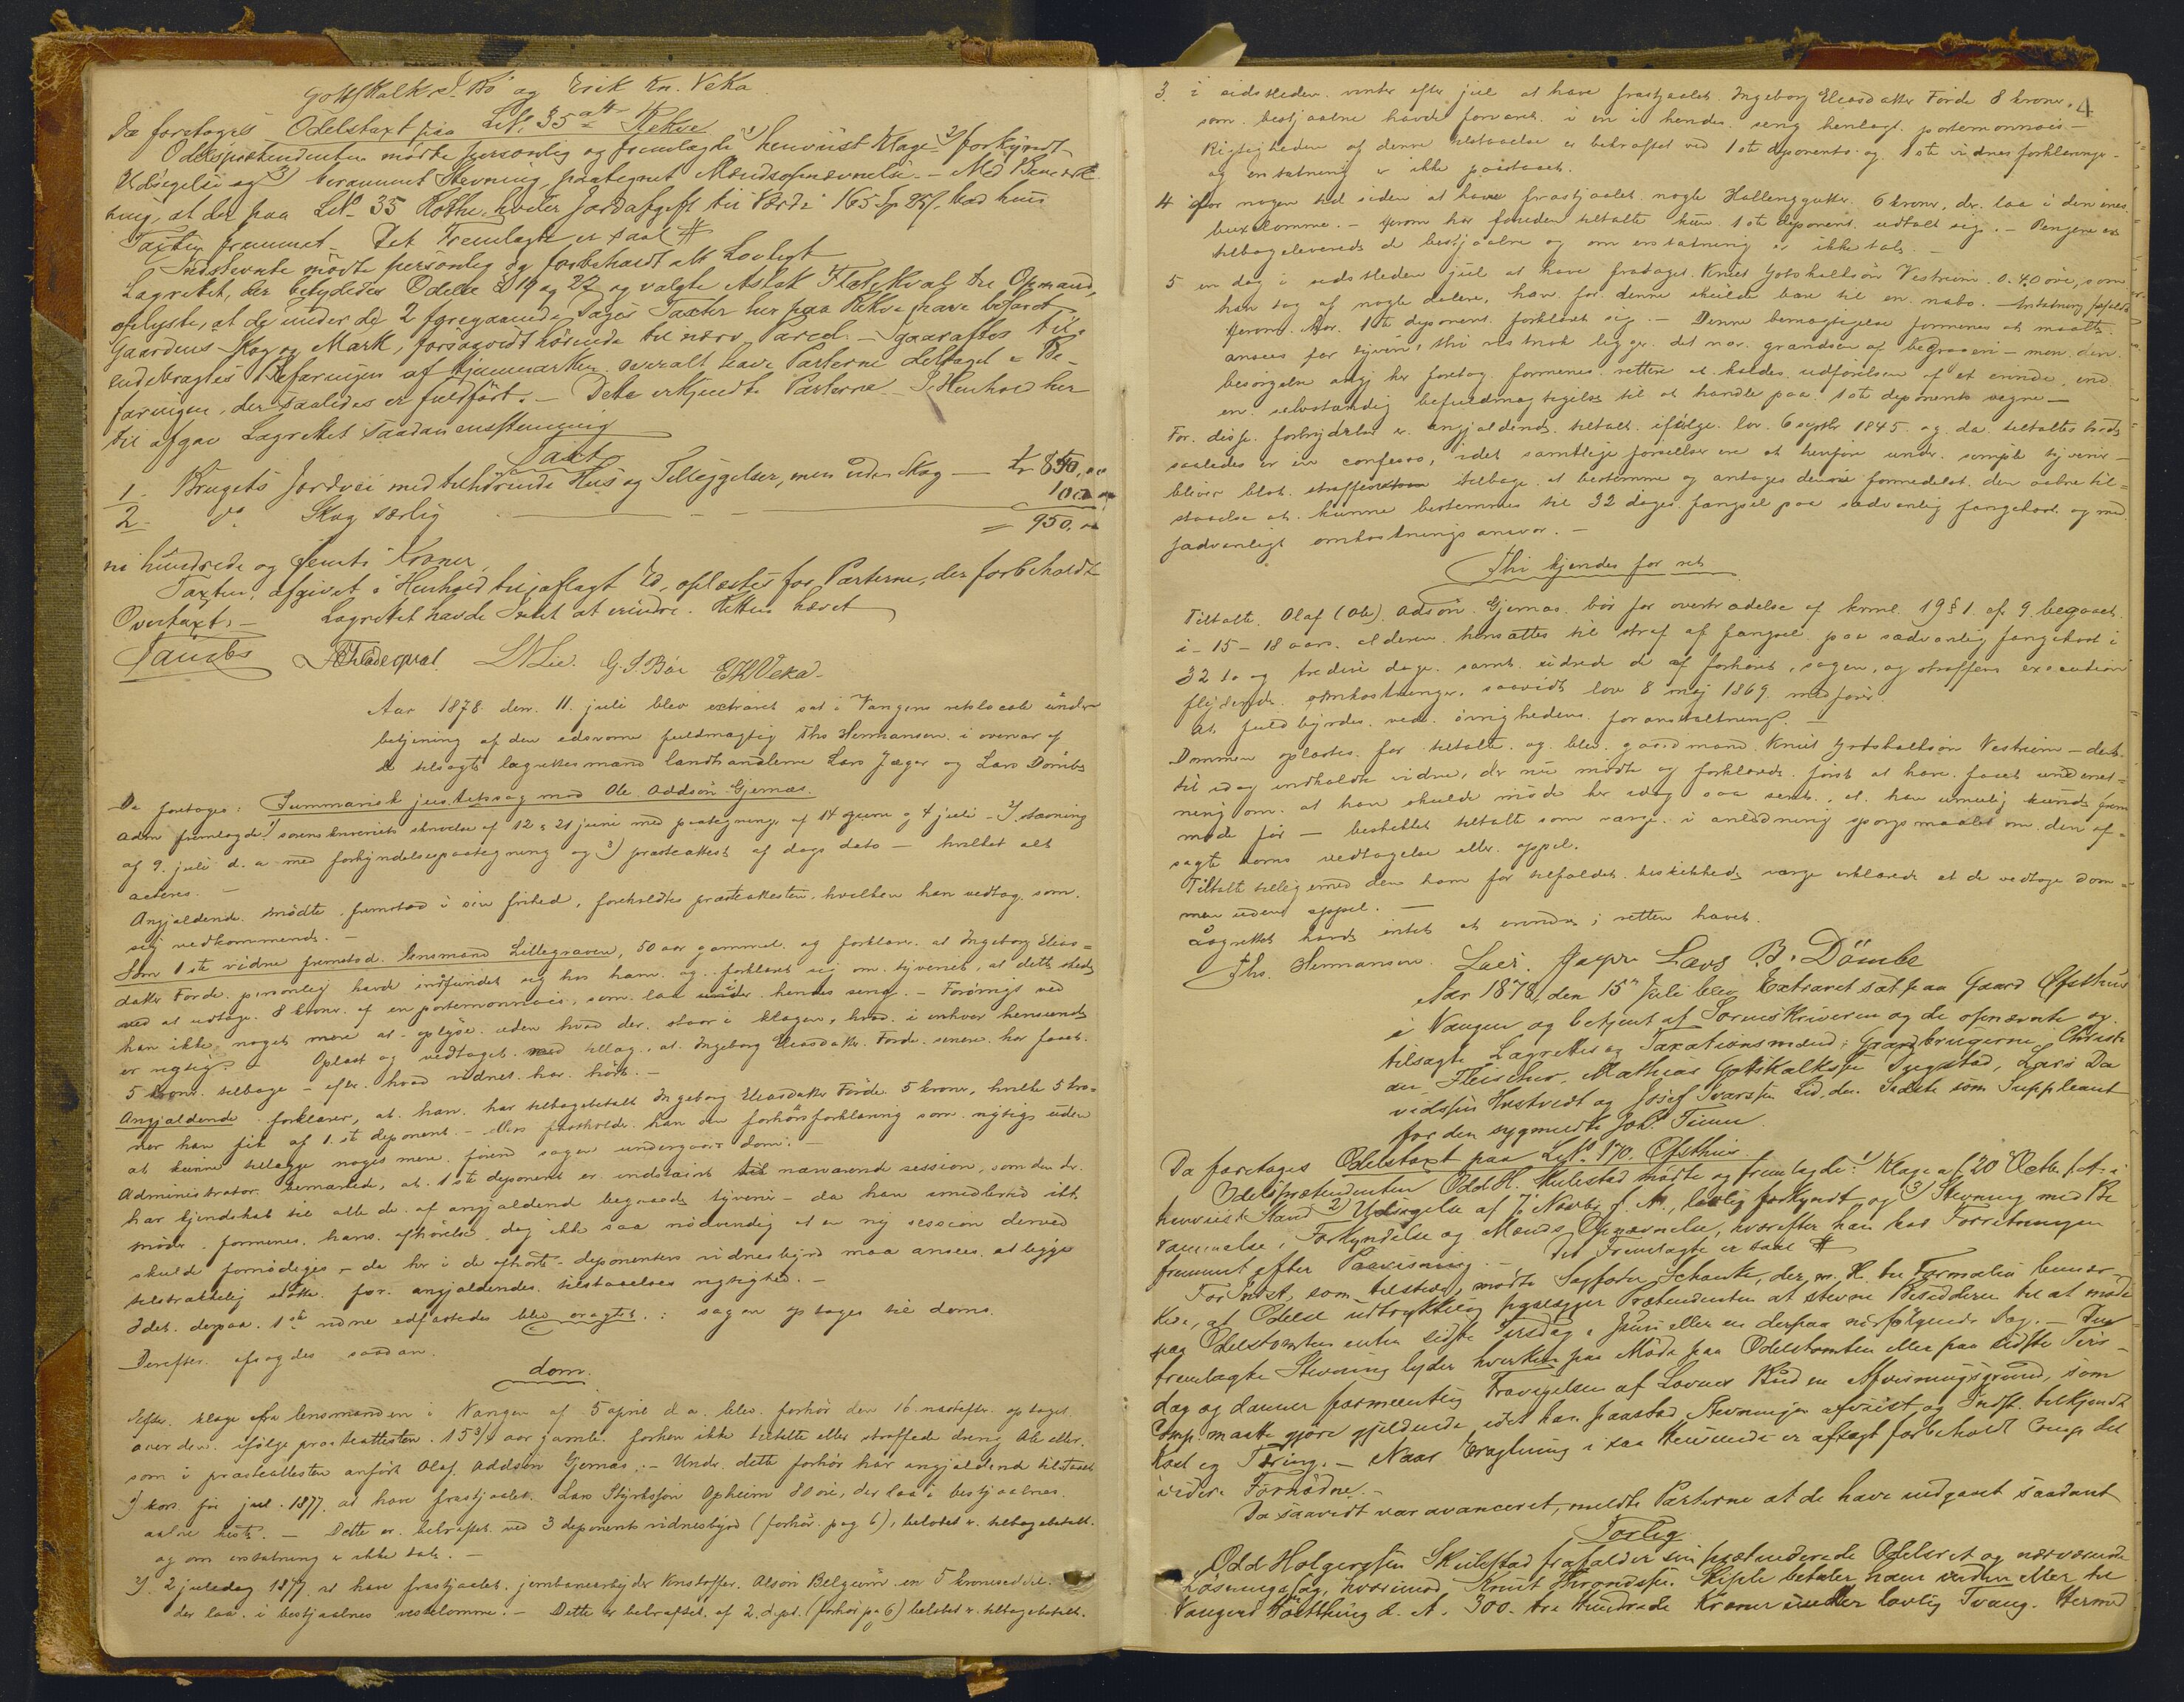 Gottskalk S. Bö og Erik Kn. Veka.
Da foretoges Odelstaxt paa LNo. 35 Rekve
Odelsprætendenten mødte personlig og fremlagde 1) henviist Klage 2) forkyndt
Udsigelse og 3) berammet Stevning, paategnet Mændsopnævnelse. – Med Bemærk-
ning, at der paa LNo 35 hviler Jordafgift til Værdi 165 Sp. bad hans
Taxten fremmet. – Det Fremlagte er saal. #
Indstevnte mødte personlig og forbeholdt alt Lovligt
Lagrettet, der betydedes Odelsl. § 19 og 22 og valgte Aslak Flatekval til Opmand,
oplyste, at de under de 2 foregaaende Dages Taxter her paa Rekve have befaret
Gaardens Skog og Mark, forsaavidt hørende til nærv. Parcel. – Igaaraftes til-
endebragtes Befaringen af Hjemmarken. overalt have Parterne deltaget i Be-
faringen, der saaledes er fuldført. – Dette erkjendte Parterne. – I Henhold her
til afgav Lagrettet saadan enstemmig
Taxt
1. Brugets Jordvei med tilhørende Hus og Tilliggelser, men uden Skog — Kr 850,00
2. do Skog særlig — — — 100,00
= 950,00
ni hundrede og femti Kroner.
Taxten, afgivet i Henhold til aflagt Ed, oplæstes for Parterne, der forbeholdt
Overtaxt. – Lagrettet havde Intet at erindre. Retten hævet
Jacobs A Fladeqval. L N Lie. G. S. Böe E K Veka.
Aar 1878 den 11. juli blev extraret sat i Vangens retslocale under
betjening af den edsvorne fuldmægtig Ths Hermansen i overvær af
de tilsagte lagrettesmænd landhandlerne Lars Jæger og Lars Dömbe
Da foretoges: Summarisk justitssag mod Ole Addsøn Gjernæs.
Adm. fremlagde 1) sorenskriveriets skrivelse af 12 & 21 juni med paategning af 14 juni og 4 juli – 2) stævning
af 9. juli d. a. med forkyndelsespaategning og 3) præsteattest af dags dato — hvilket alt
acteres. –
Angjældende mødte, fremstod i sin frihed, foreholdtes præsteattesten, hvilken han vedtog som
sig vedkommende. –
Som 1ste vidne fremstod lensmand Lillegraven, 50 aar gammel og forklarer at Ingeborg Elias-
datter Førde personlig havde indfundet sig hos ham og forklaret sig om tyveriet, at dette skede
ved at udtage 8 kroner af en portemonnaie, som laa i hendes seng. – Forøvrigt ved
han ikke noget mere at oplyse uden hvad der staar i klagen, hvad i enhver henseende
er rigtigt. – Oplæst og vedtaget med tillæg, at Ingeborg Eliasdatter Førde senere har faaet
5 kroner tilbage – efter hvad vidnet har hørt. –
Angjældende forklarer, at han har tilbagebetalt Ingeborg Eliasdatter Førde 5 kroner, hvilke 5 kro-
ner han fik af 1. ste deponent. – Ellers fastholder han sin forhørsforklaring som rigtig uden
at kunne tillægge noget mere, forend sagen undergaar dom. –
Administrator bemærkede, at 1ste deponent er indstævnt til nærværende session, som den der
har kjendskab til alle de af angjældende begaaede tyverier – da han imidlertid ikke
møder formenes hans afhørelse dog ikke saa nødvendig at en ny session derved
skulde fornødiges – da her i de afhørte deponenters vidnesbyrd maa ansees at ligge
tilstrækkelig støtte for angjældendes tilstaaelses rigtighed. –
Idet derpaa 1ste vidne edfæstedes blev eragtet: sagen optages til doms.
Derefter afsagdes saadan
dom.
Efter klage fra lensmanden i Vangen af 5 april d. a. blev forhør den 16. næstefter optaget
over den ifølge præsteattesten 15 3/4 aar gamle forhen ikke tiltalte eller straffede dreng Ole eller,
som i præsteattesten anført Olaf Addsøn Gjernæs. – Under dette forhør har angjældende tilstaaet
1) kort før jul 1877 at have frastjaalet Lars Styrksøn Opheim 80 øre, der laa i bestjaalnes
aabne kiste. – Dette er bekræftet ved 3 deponents vidnesbyrd (forhør pag 6), beløbet er tilbagebetalt.
og om erstatning er ikke tale. –
2) 2 juledag 1877 at have frastjaalet jernbanearbejder Kristoffer Alsøn Belgum en 5 kroneseddel
der laa i bestjaalnes vestelomme. – Dette er bekræftet af 2. dept. (forhør pag 6) beløbet er tilbagebetalt.
4
3. i sidstleden vinter efter jul at have frastjaalet Ingeborg Eliasdatter Førde 8 kroner,
som bestjaalne havde forvaret i en i hendes seng henlagt portemonnaie –
Rigtigheden af denne tilstaaelse er bekræftet ved 1ste deponents og 1ste vidnes forklaringer –
og erstatning er ikke paastaaet.
4 for nogen tid siden at have frastjaalet nogle Hallinggutter 6 kroner, der laa i den enes
buxelomme. – Herom har foruden tiltalte kun 1ste deponent udtalt sig. – Pengene er
tilbageleverede de bestjaalne og om erstatning er ikke tale –
5 en dag i sidstleden jul at have fradaget Knut Gotskalksøn Vestreim 0.40 øre, som
han tog af nogle dalere, han for denne skulde bære til en nabo. – Erstatning frafaldt
herom har 1ste deponent forklaret sig. – Denne bemægtigelse formenes at maatte
ansees for tyveri, thi vistnok ligger det nær grændsen af bedrageri – men den
besørgelse angj. her foretog formenes rettere at kaldes udførelsen af et erinde, end
en selvstændig befuldmægtigelse til at handle paa 1ste deponents vegne –
For disse forbrydelser er angjældende tiltalt ifølge lov 6 septbr 1845 og da tiltaltes brøde
saaledes er in confesso, idet samtlige forseelser ere at henføre under simple tyverier –
bliver blot straffen tilbage at bestemme og antages denne formedelst den aabne til-
staaelse at kunne bestemmes til 32 dages fængsel paa sædvanlig fangekost og med
sædvanligt omkostningsansvar. –
Thi kjendes for ret
Tiltalte Olaf (Ole) Adsøn Gjernæs bør for overtrædelse af krml. 19 § 1 cfr 9 begaaet
i 15–18 aars alderen hensættes til straf af fængsel paa sædvanlig fangekost i
32 to og tredive dage samt udrede de af forhøret, sagen og straffens execution
flydende omkostninger, saavidt lov 8 maj 1869 medfører.
At fuldbyrdes ved øvrighedens foranstaltning. –
Dommen oplæstes for tiltalte og blev gaardmand Knut Gotskalksøn Vestreim – det
til idag indkaldte vidne, der nu mødte og forklarede først at have faaet underret-
ning om at han skulde møde her idag saa sent, at han umulig kunde frem
møde før — beskikket tiltalte som værge i anledning spørgsmaalet om den af-
sagte doms vedtagelse eller appel.
Tiltalte tilligemed den ham for tilfældet beskikkede værge erklærede at de vedtoge dom-
men uden appel. –
Lagrettet havde intet at erindre; retten hævet.
Ths. Hermansen. Lars Jæger Lars B. Dömbe
Aar 1878, den 15de Juli blev Extraret sat paa Gaard Øfsthus
i Vangen og betjent af Sorenskriveren og de opnævnte og
tilsagte Lagrettes og Taxationsmænd: Gaardbrugerne Christi
an Fleischer, Mathias Gotskalksen Dugstad, Lars Da
vidsen Hustvedt og Josef Ivarsen Lid, den Sidste som Suppleant
for den sygmeldte Joh. Finne.
Da foretoges Odelstaxt paa LNo 170. Øfsthus.
Odelsprætendenten Odd H. Skulestad mødte og fremlagde: 1) Klage af 20 Octbr f. A. i
henviist Stand 2) Udsigelse af 7 Novbr f. A., lovlig forkyndt og 3) Stevning med Be
rammelse, Forkyndelse og Mænds Opnævnelse, hvorefter han bad Forretningen
fremmet efter Paavisning. – Det Fremlagte er saal. #
For Indst., som tilstede, mødte Sagfører Schanke, der, m. H. til Formalia bemær-
kede, at Odelsl. udtrykkelig paalægger Prætendenten at stevne Besidderen til at møde
paa Odelstomten enten sidste Tirsdag i Juni eller en derpaa nærfølgende Dag. – Den
fremlagte Stevning lyder hverken paa Møde paa Odelstomten eller paa sidste Tirs-
dag og danner formeentlig Fravigelsen af Lovens Bud en Afvisningsgrund, som
Comp. maatte gjøre gjældende idet han paastod Stevningen afviist og Indst. tilkjendt
Kost og Tæring. – Naar Eragtning i saa Henseende er afsagt forbeholdt Comp. det
videre Fornødne. –
Da saavidt var avanceret, meldte Parterne at de have indgaaet saadant
Forlig
Odd Holgersen Skulestad frafalder sin prætenderede Odelsret og nærværende
Løsningssag, hvorimod Knut Throndsen Skiple betaler ham inden eller til
Vangens Høstthing d. A. 300 – tre Hundrede Kroner under lovlig Tvang. Hermed